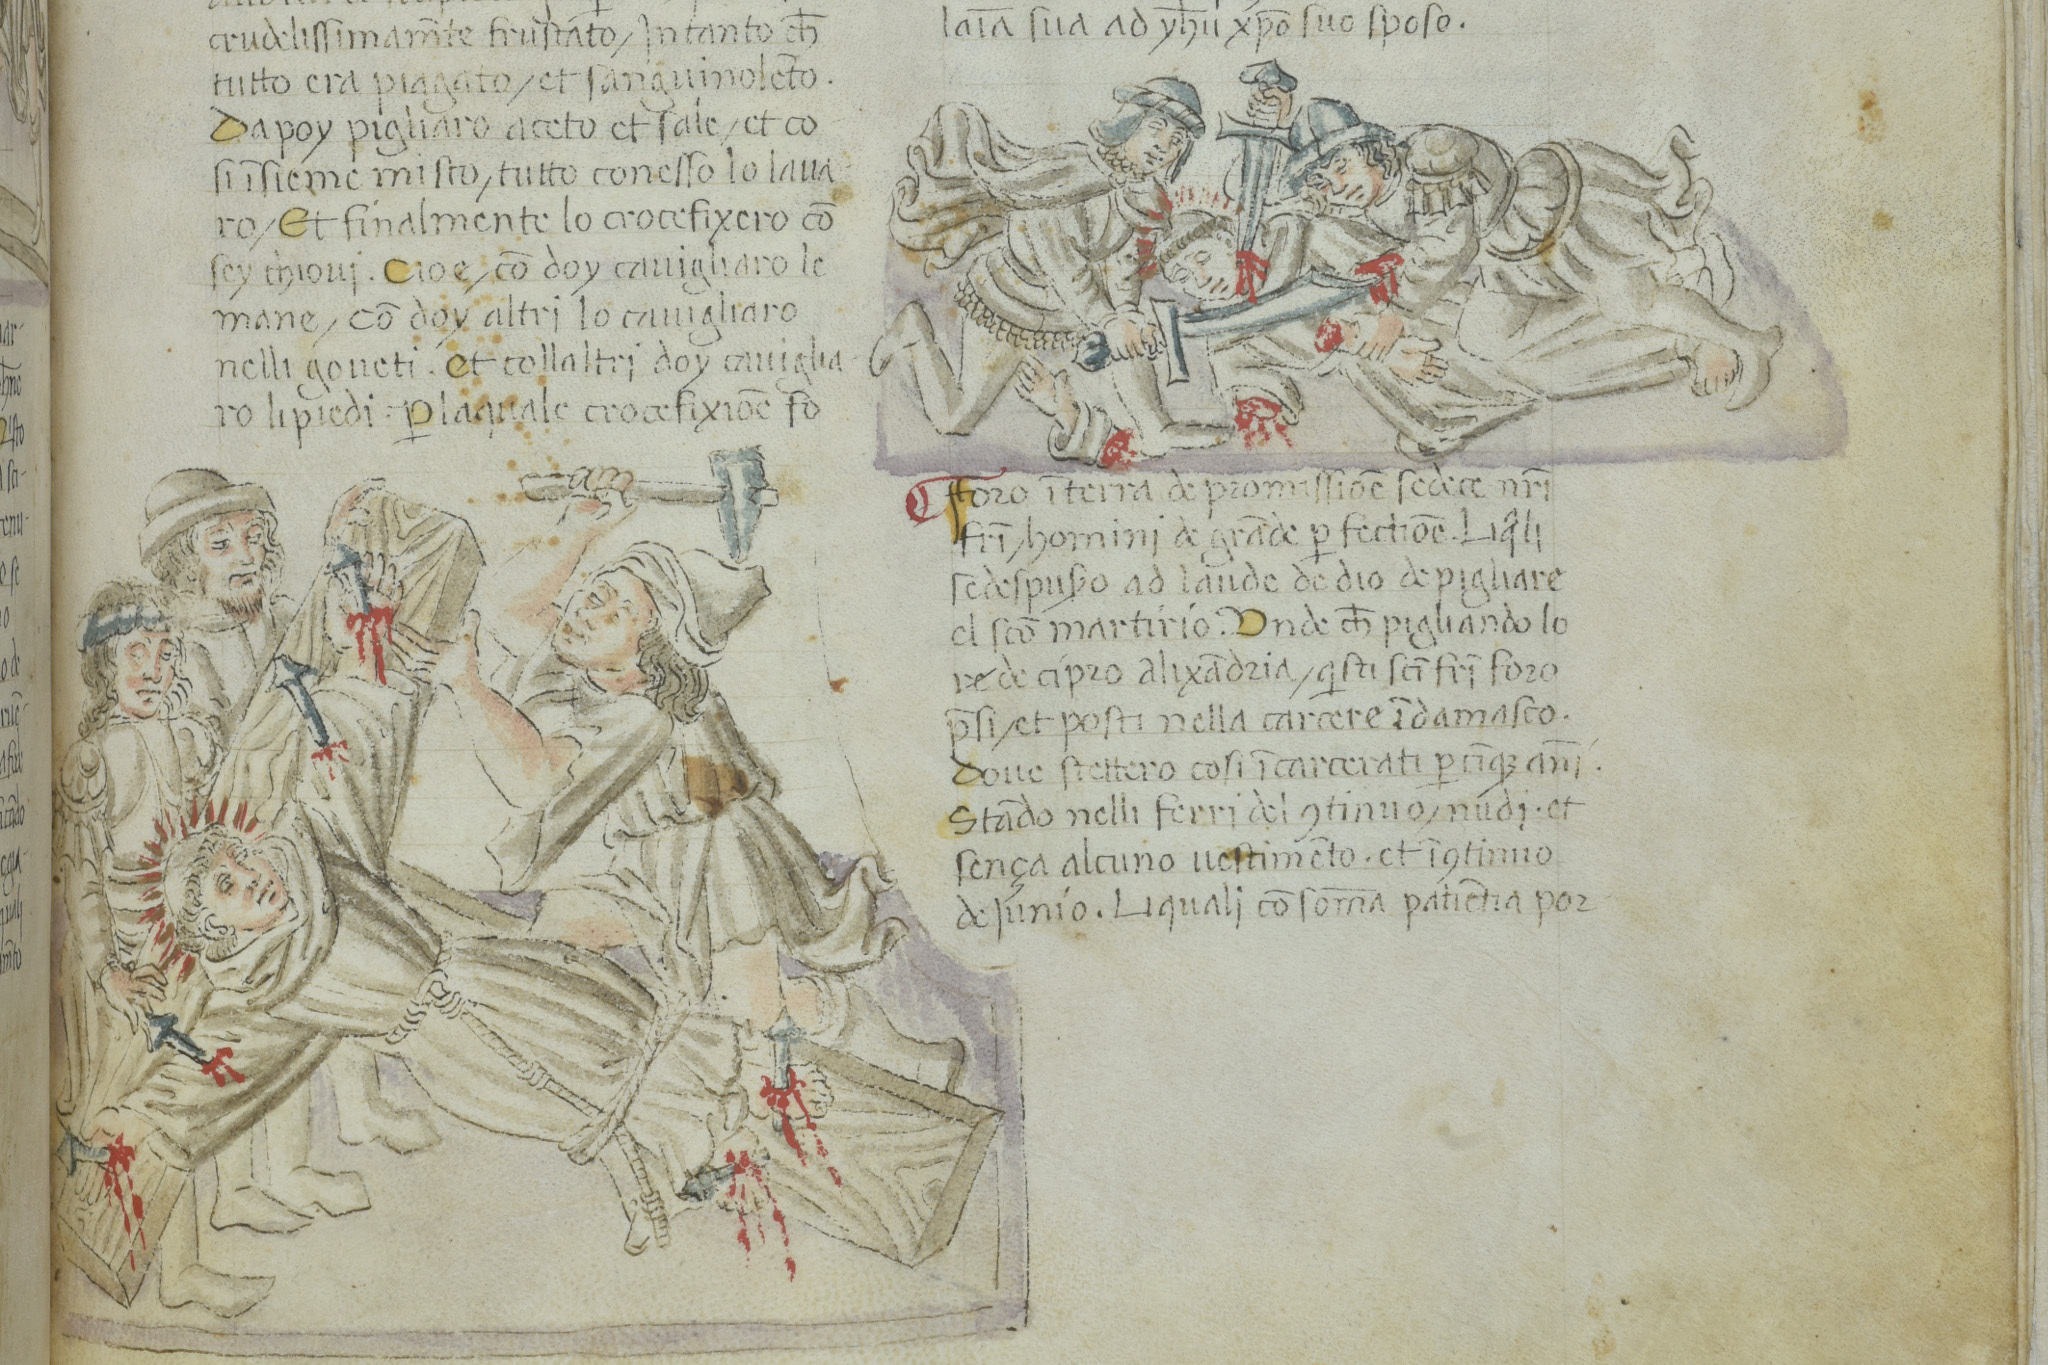 crudelissimam̄te frustato/Intanto ch̄
tutto era piagato/et sanguinolēto.
Da poy pigliaro aceto et sale/et co
si īsieme misto/tutto conesso lo laua-
ro/Et finalmente lo crocefixero cō
sey chioui. Cioe/cō doy cauigliaro le
mane/cō doy altri lo cauigliaro
nelli goueti. et collaltri doy cauiglia-
ro li piedi. P̱ laquale crocefixiōe fo
laīa sua ad yh̄u xp̄o suo sposo.
fforo ī terra de promissiōe sedece nr̄i
frī/homini de grāde p̱fectiōe. Liq̄li
sedespuſo ad laude de dio de pigliare
el scō martirio. Onde ch̄ pigliando lo
re de cipro alixādria/q̄sti scī frī foro
p̄si/et posti nella carcere ī damasco.
doue stettero cosi īcarcerati p̱ cīq; ānī.
Stādo nelli ferri del ꝯtinuo/nudi. et
sença alcuno uestimēto. et ī ꝯtinuo
de Iunio. Liquali cō som̄a patiētia por-